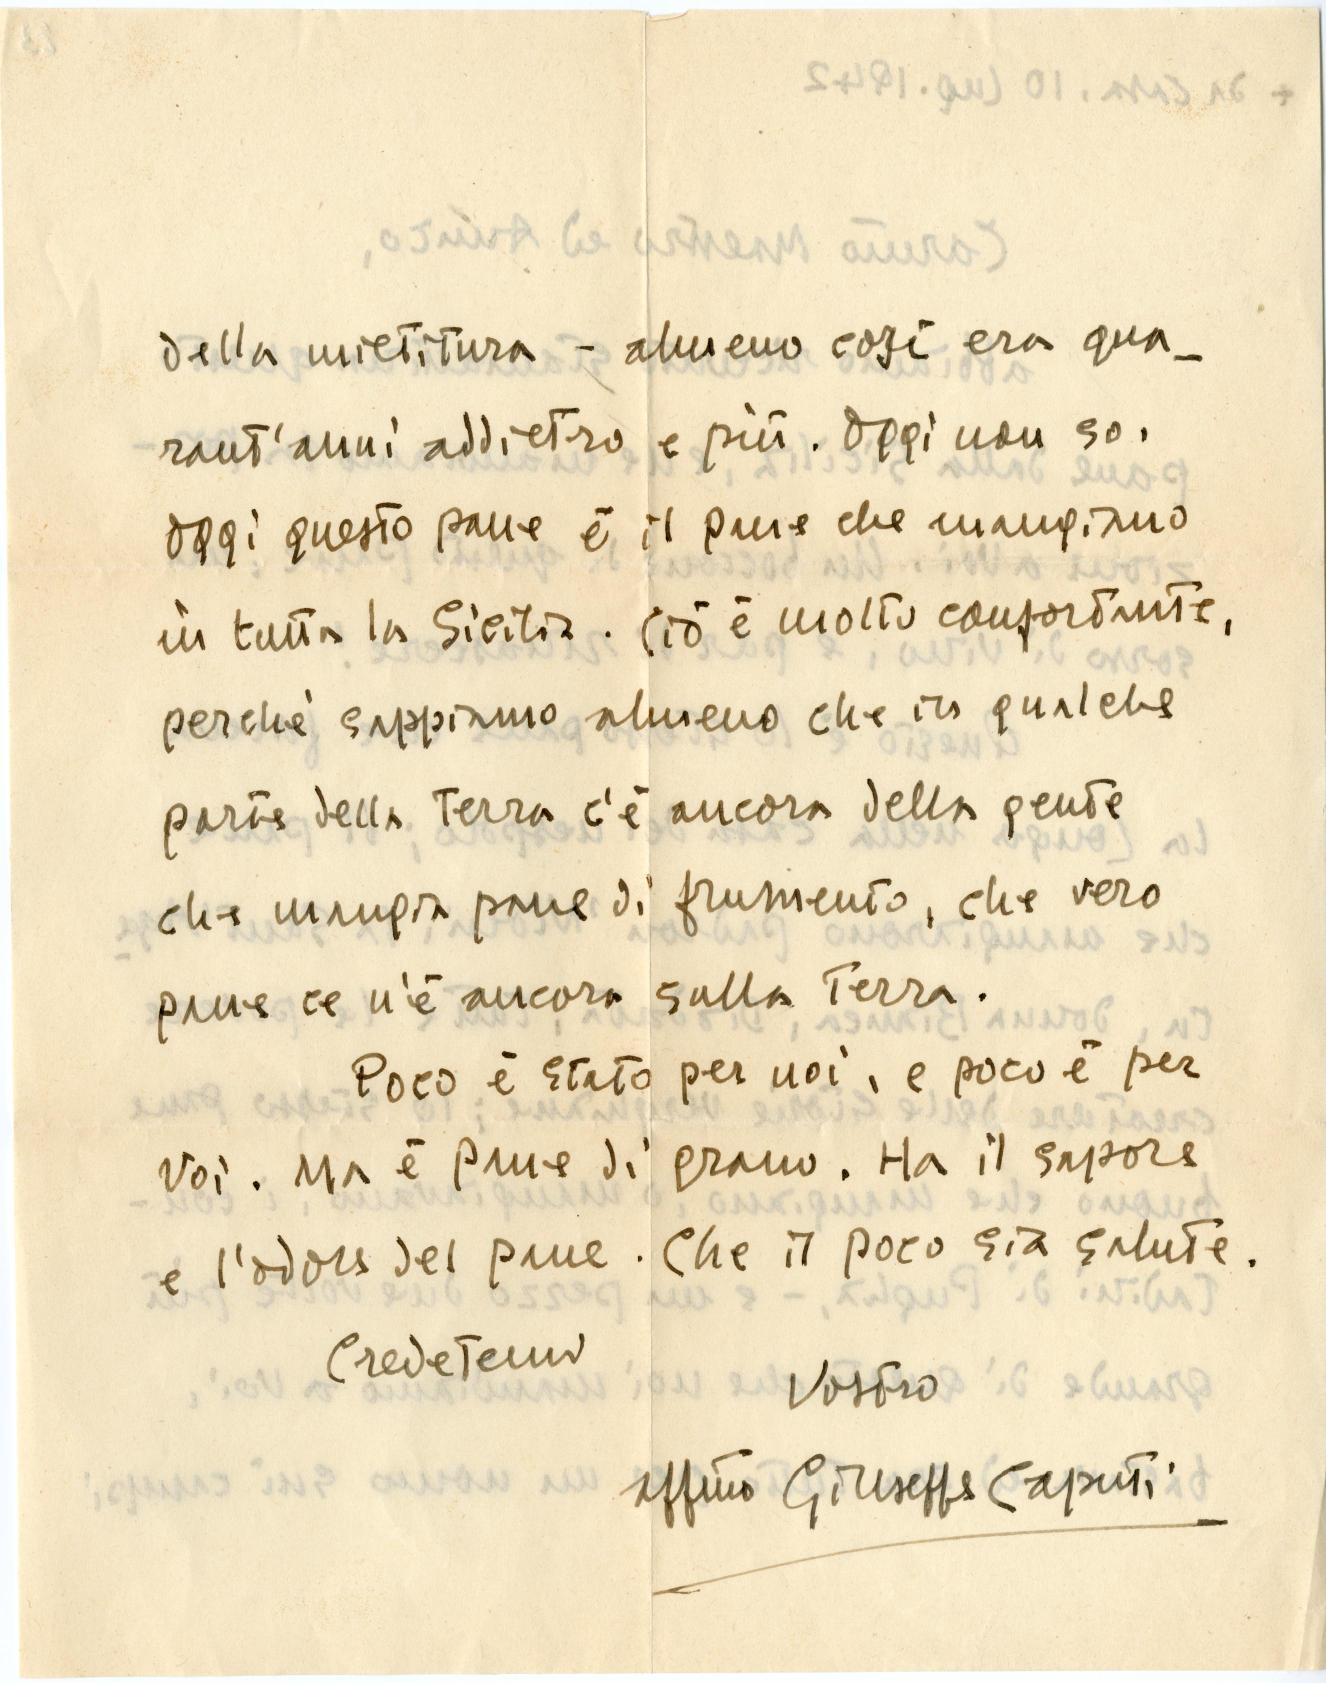 della mietitura – almeno così era qua-
rant'anni addietro e più. Oggi non so.
Oggi questo pane è il pane che mangiamo
in tutta la Sicilia. Ciò è molto confortante,
perché sappiamo almeno che in qualche
parte della Terra c'è ancora della gente
che mangia pane di frumento, che vero
pane ce n'è ancora sulla Terra.
Poco è stato per noi, e poco è per
Voi. Ma è pane di grano. Ha il sapore
e l'odore del pane. Che il poco sia salute.
Credetemi
Vostro
affmo Giuseppe Caputi